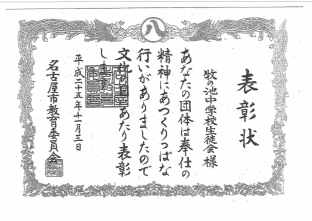 八
表彰状
牧の池中学校生徒会様
あなたの団体は奉仕の
精神にあつくりっぱな
行いがありましたので
文化の日にあたり表彰
します
平成二十五年十一月三日
名古屋市教育委員会